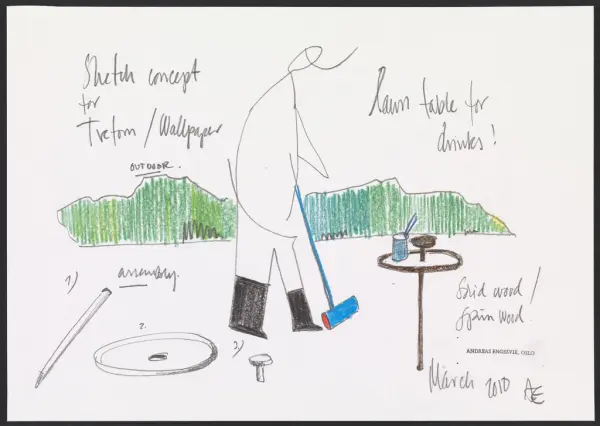 Sketch concept
for
Tretorn / Wallpaper
OUTDOOR.
Lawn table for
drinks!
1)
assembly.
2.
3)
Solid wood /
Spun wood.
ANDREAS ENGESVIK, OSLO
March 2010 AE